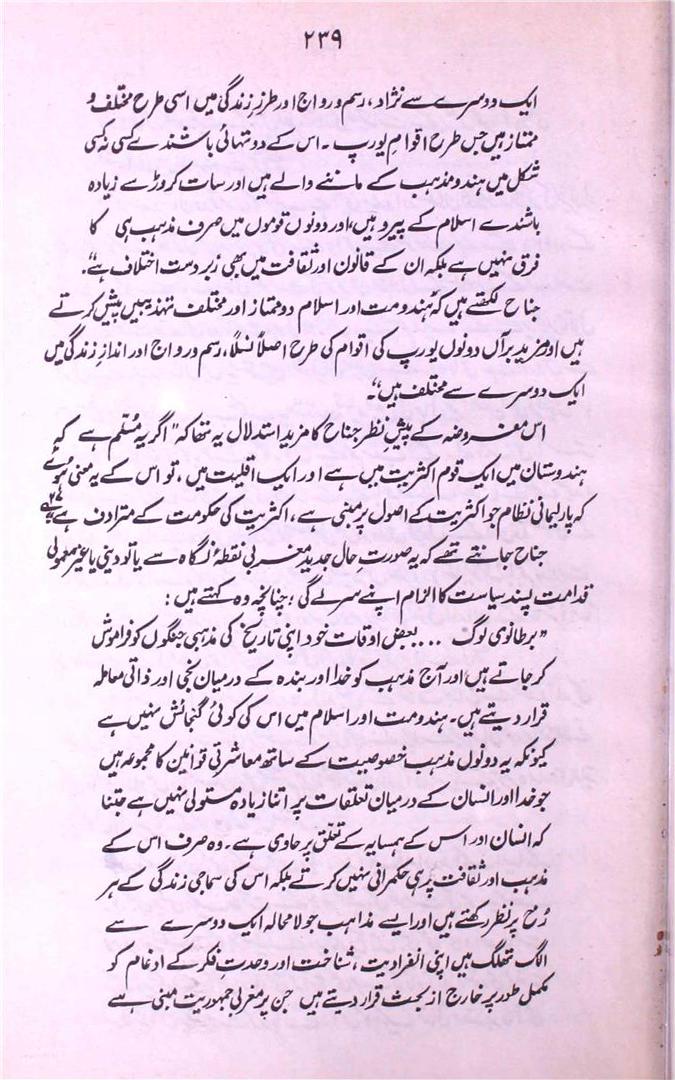 ۲۳۹
ایک دوسرے سے نژاد، رسم و رواج اور طرزِ زندگی میں اسی طرح مختلف و
ممتاز ہیں جس طرح اقوامِ یورپ ۔ اس کے دو تہائی باشندے کسی نہ کسی
شکل میں ہندو مذہب کے ماننے والے ہیں اور سات کروڑ سے زیادہ
باشندے اسلام کے پیرو ہیں، اور دونوں قوموں میں صرف مذہب ہی کا
فرق نہیں ہے بلکہ ان کے قانون اور ثقافت میں بھی زبردست اختلاف ہے“۔
جناح لکھتے ہیں کہ ”ہندومت اور اسلام دو ممتاز اور مختلف تہذیبیں پیش کرتے
ہیں اور مزید برآں دونوں یورپ کی اقوام کی طرح اصلاً نسلاً، رسم و رواج اور اندازِ زندگی میں
ایک دوسرے سے مختلف ہیں“۔
اس مفروضہ کے پیشِ نظر جناح کا مزید استدلال یہ تھا کہ ”اگر یہ مُسلّم ہے کہ
ہندوستان میں ایک قوم اکثریت میں ہے اور ایک اقلیت میں، تو اس کے یہ معنی ہوئے
کہ پارلیمانی نظام جو اکثریت کے اصول پر مبنی ہے، اکثریت کی حکومت کے مترادف ہے“
جناح جانتے تھے کہ یہ صورتِ حال جدید مغربی نقطۂ نگاہ سے یا تو دینی یا غیر معمولی
قدامت پسند سیاست کا الزام اپنے سر لے گی؛ چنانچہ وہ کہتے ہیں :
”برطانوی لوگ ... بعض اوقات خود اپنی تاریخ کی مذہبی جنگوں کو فراموش
کر جاتے ہیں اور آج مذہب کو خدا اور بندہ کے درمیان نجی اور ذاتی معاملہ
قرار دیتے ہیں۔ ہندومت اور اسلام میں اس کی کوئی گنجائش نہیں ہے
کیونکہ یہ دونوں مذہب خصوصیت کے ساتھ معاشرتی قوانین کا مجموعہ ہیں
جو خدا اور انسان کے درمیان تعلقات پر اتنا زیادہ مستولی نہیں ہے جتنا
کہ انسان اور اس کے ہمسایہ کے تعلق پر حاوی ہے۔ وہ صرف اس کے
مذہب اور ثقافت پر ہی حکمرانی نہیں کرتے بلکہ اس کی سماجی زندگی کے ہر
رُخ پر نظر رکھتے ہیں اور ایسے مذاہب جو لامحالہ ایک دوسرے سے
الگ تھلگ ہیں اپنی انفرادیت، شناخت اور وحدتِ فکر کے ادغام کو
مکمل طور پر خارج از بحث قرار دیتے ہیں جن پر مغربی جمہوریت مبنی ہے